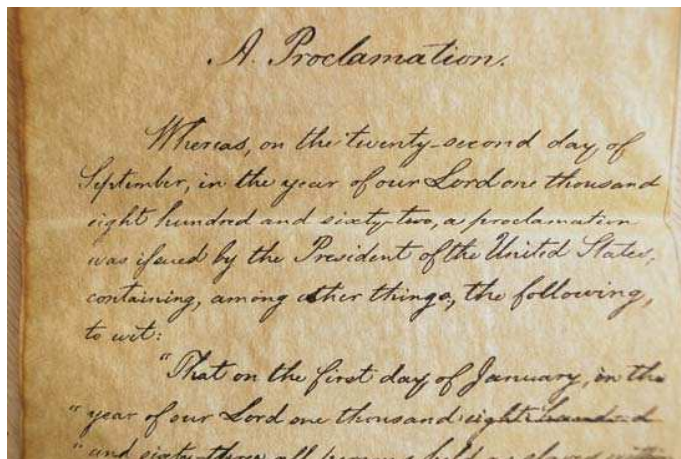 A. Proclamation.
Whereas, on the twenty-second day of
September, in the year of our Lord one thousand
eight hundred and sixty-two, a proclamation
was issued by the President of the United States,
containing, among other things, the following,
to wit:
"That on the first day of January, in the
"year of our Lord one thousand eight hundred
"and sixty-three, all persons held as slaves within